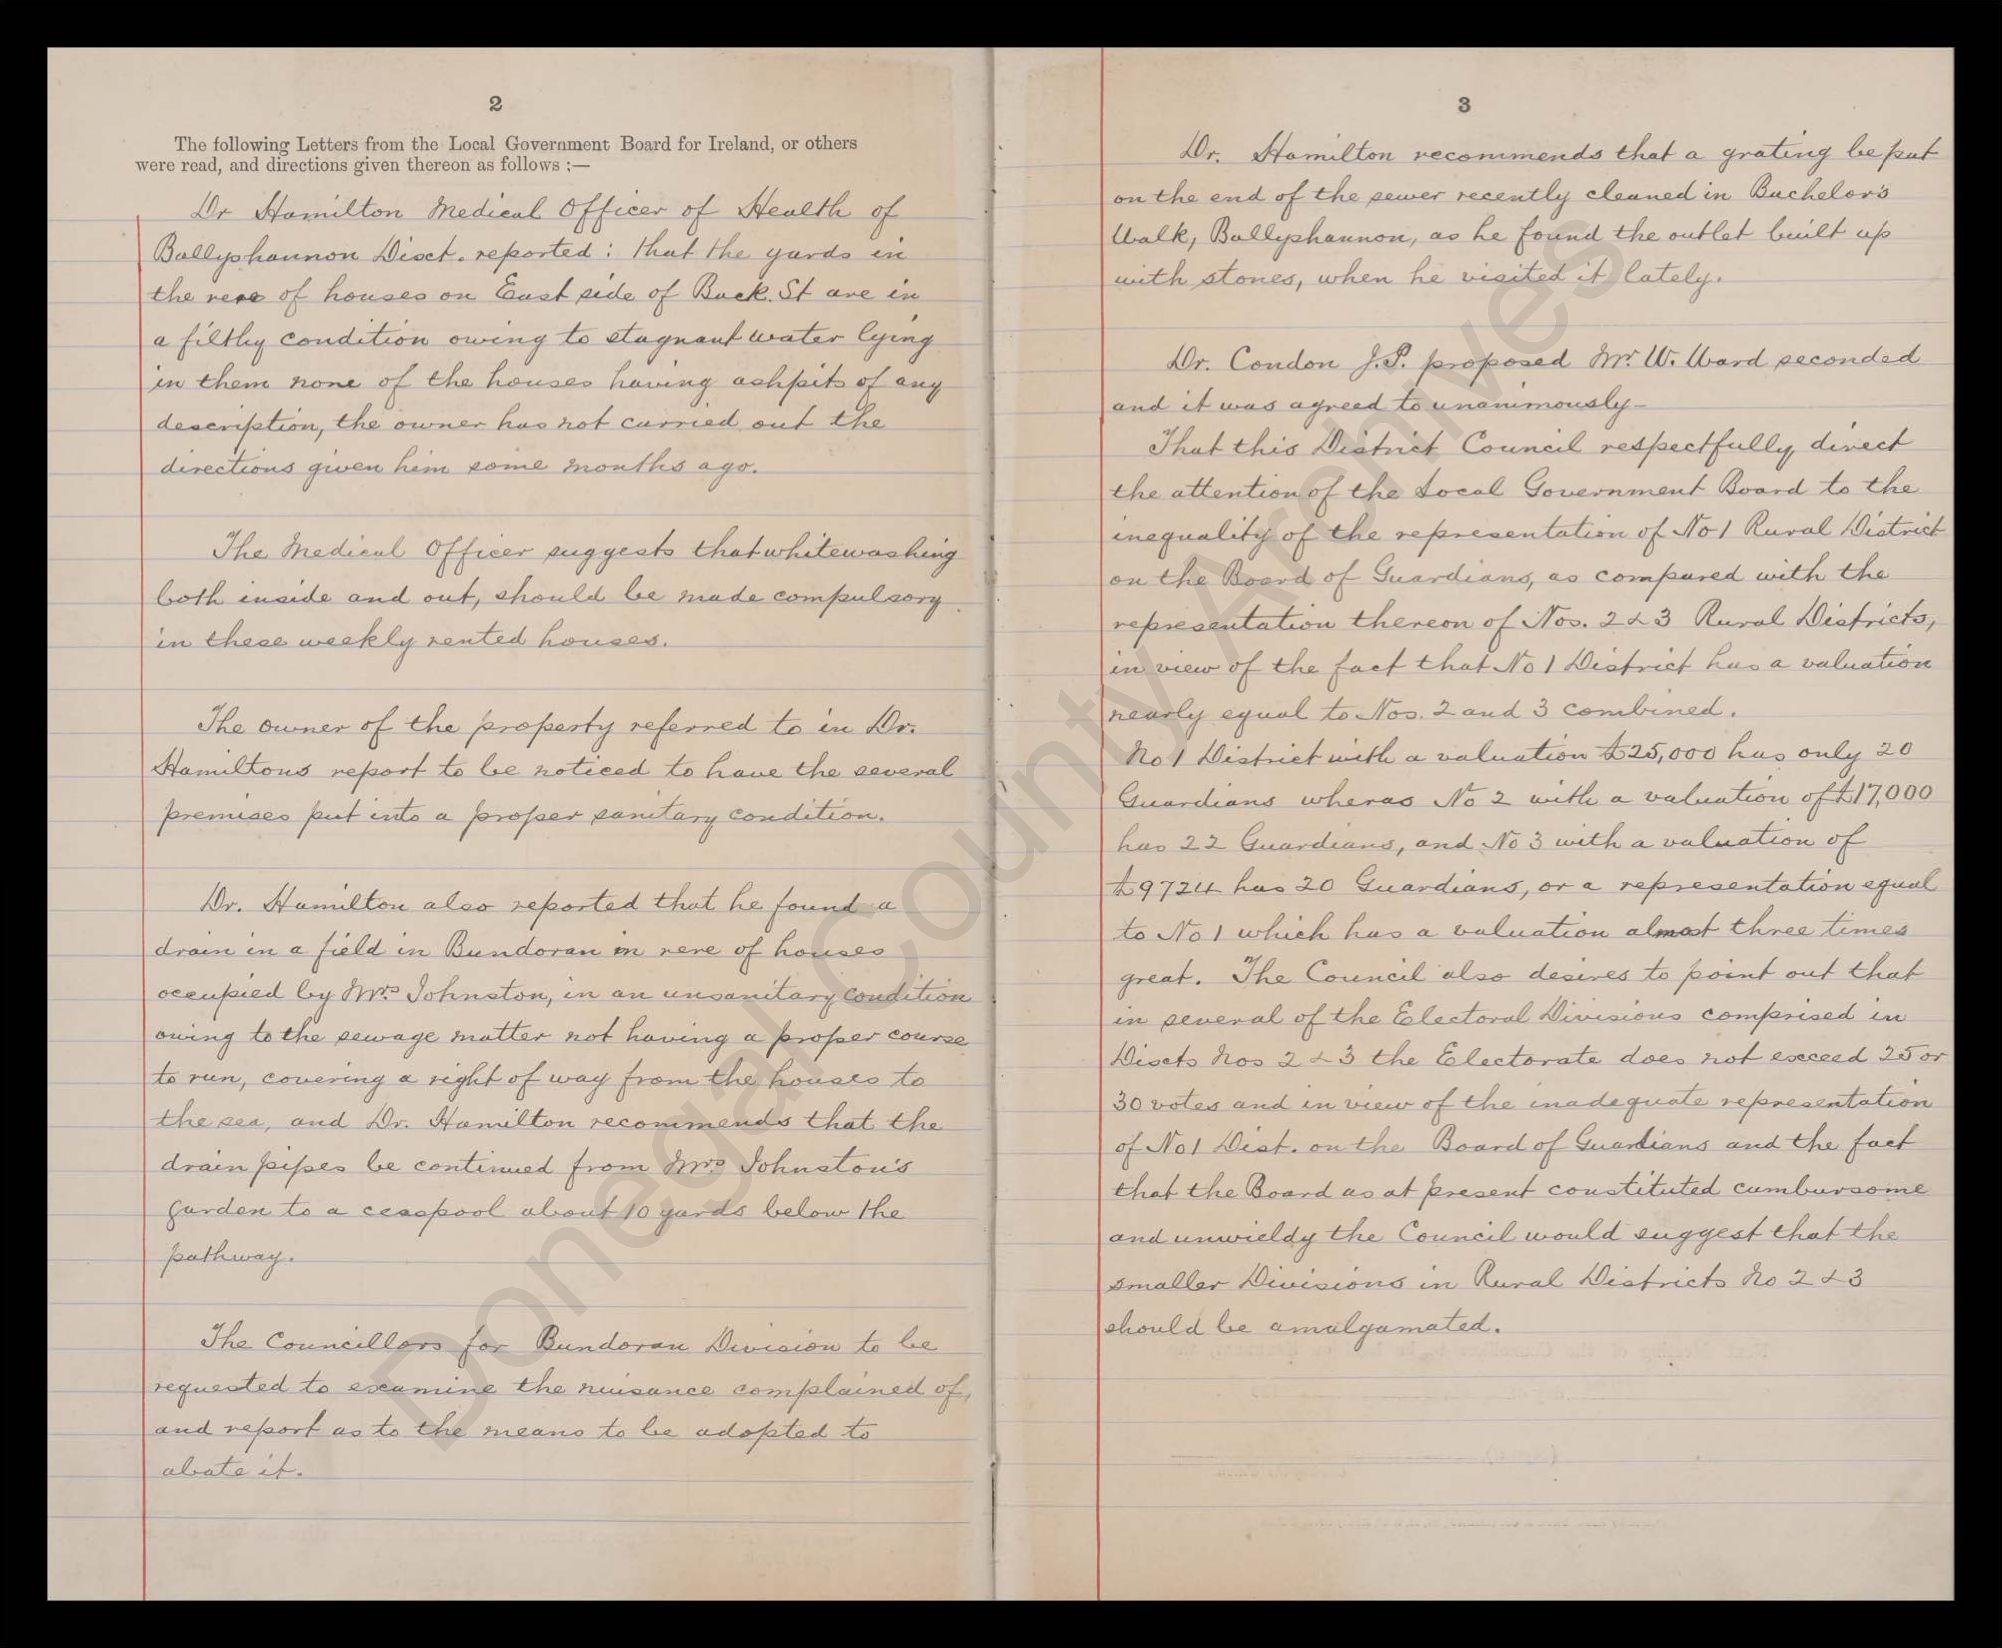 2
The following Letters from the Local Government Board for Ireland, or others
were read, and directions given thereon as follows :—
Dr Hamilton Medical Officer of Health of
Ballyshannon Disct. reported: that the yards in
the rere of houses on East side of Back. St are in
a filthy condition owing to stagnant water lying
in them none of the houses having ashpits of any
description, the owner has not carried out the
directions given him some months ago.
The Medical Officer suggests that whitewashing
both inside and out, should be made compulsory
in these weekly rented houses.
The owner of the property referred to in Dr.
Hamiltons report to be noticed to have the several
premises put into a proper sanitary condition.
Dr. Hamilton also reported that he found a
drain in a field in Bundoran in rere of houses
occupied by Mrs Johnston, in an unsanitary condition
owing to the sewage matter not having a proper course
to run, covering a right of way from the houses to
the sea, and Dr. Hamilton recommends that the
drain pipes be continued from Mrs Johnston's
garden to a cesspool about 10 yards below the
pathway.
The Councillors for Bundoran Division to be
requested to examine the nuisance complained of,
and report as to the means to be adopted to
abate it.
3
Dr. Hamilton recommends that a grating be put
on the end of the sewer recently cleaned in Bachelor's
Walk, Ballyshannon, as he found the outlet built up
with stones, when he visited it lately.
Dr. Condon J.P. proposed Mr. W. Ward seconded
and it was agreed to unanimously—
That this District Council respectfully direct
the attention of the Local Government Board to the
inequality of the representation of No 1 Rural District
on the Board of Guardians, as compared with the
representation thereon of Nos. 2 & 3 Rural Districts,
in view of the fact that No 1 District has a valuation
nearly equal to Nos. 2 and 3 combined.
No 1 District with a valuation £25,000 has only 20
Guardians wheras No 2 with a valuation of £17,000
has 22 Guardians, and No 3 with a valuation of
£9724 has 20 Guardians, or a representation equal
to No 1 which has a valuation almost three times
great. The Council also desires to point out that
in several of the Electoral Divisions comprised in
Discts Nos 2 & 3 the Electorate does not exceed 25 or
30 votes and in view of the inadequate representation
of No 1 Dist. on the Board of Guardians and the fact
that the Board as at present constituted cumbursome
and unwieldy the Council would suggest that the
smaller Divisions in Rural Districts No 2 & 3
should be amalgamated.
Donegal County Archives